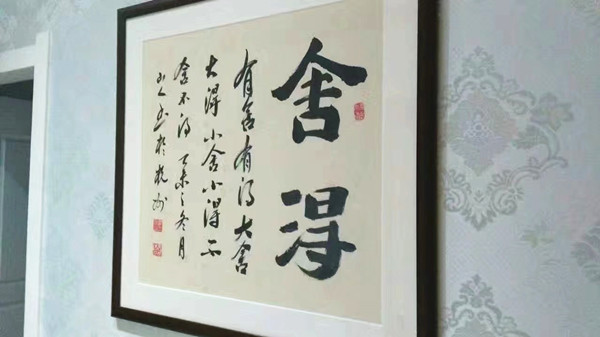 舍得
有舍有得大舍
大得小舍小得不
舍不得 丁未之冬月
山人书于杭州